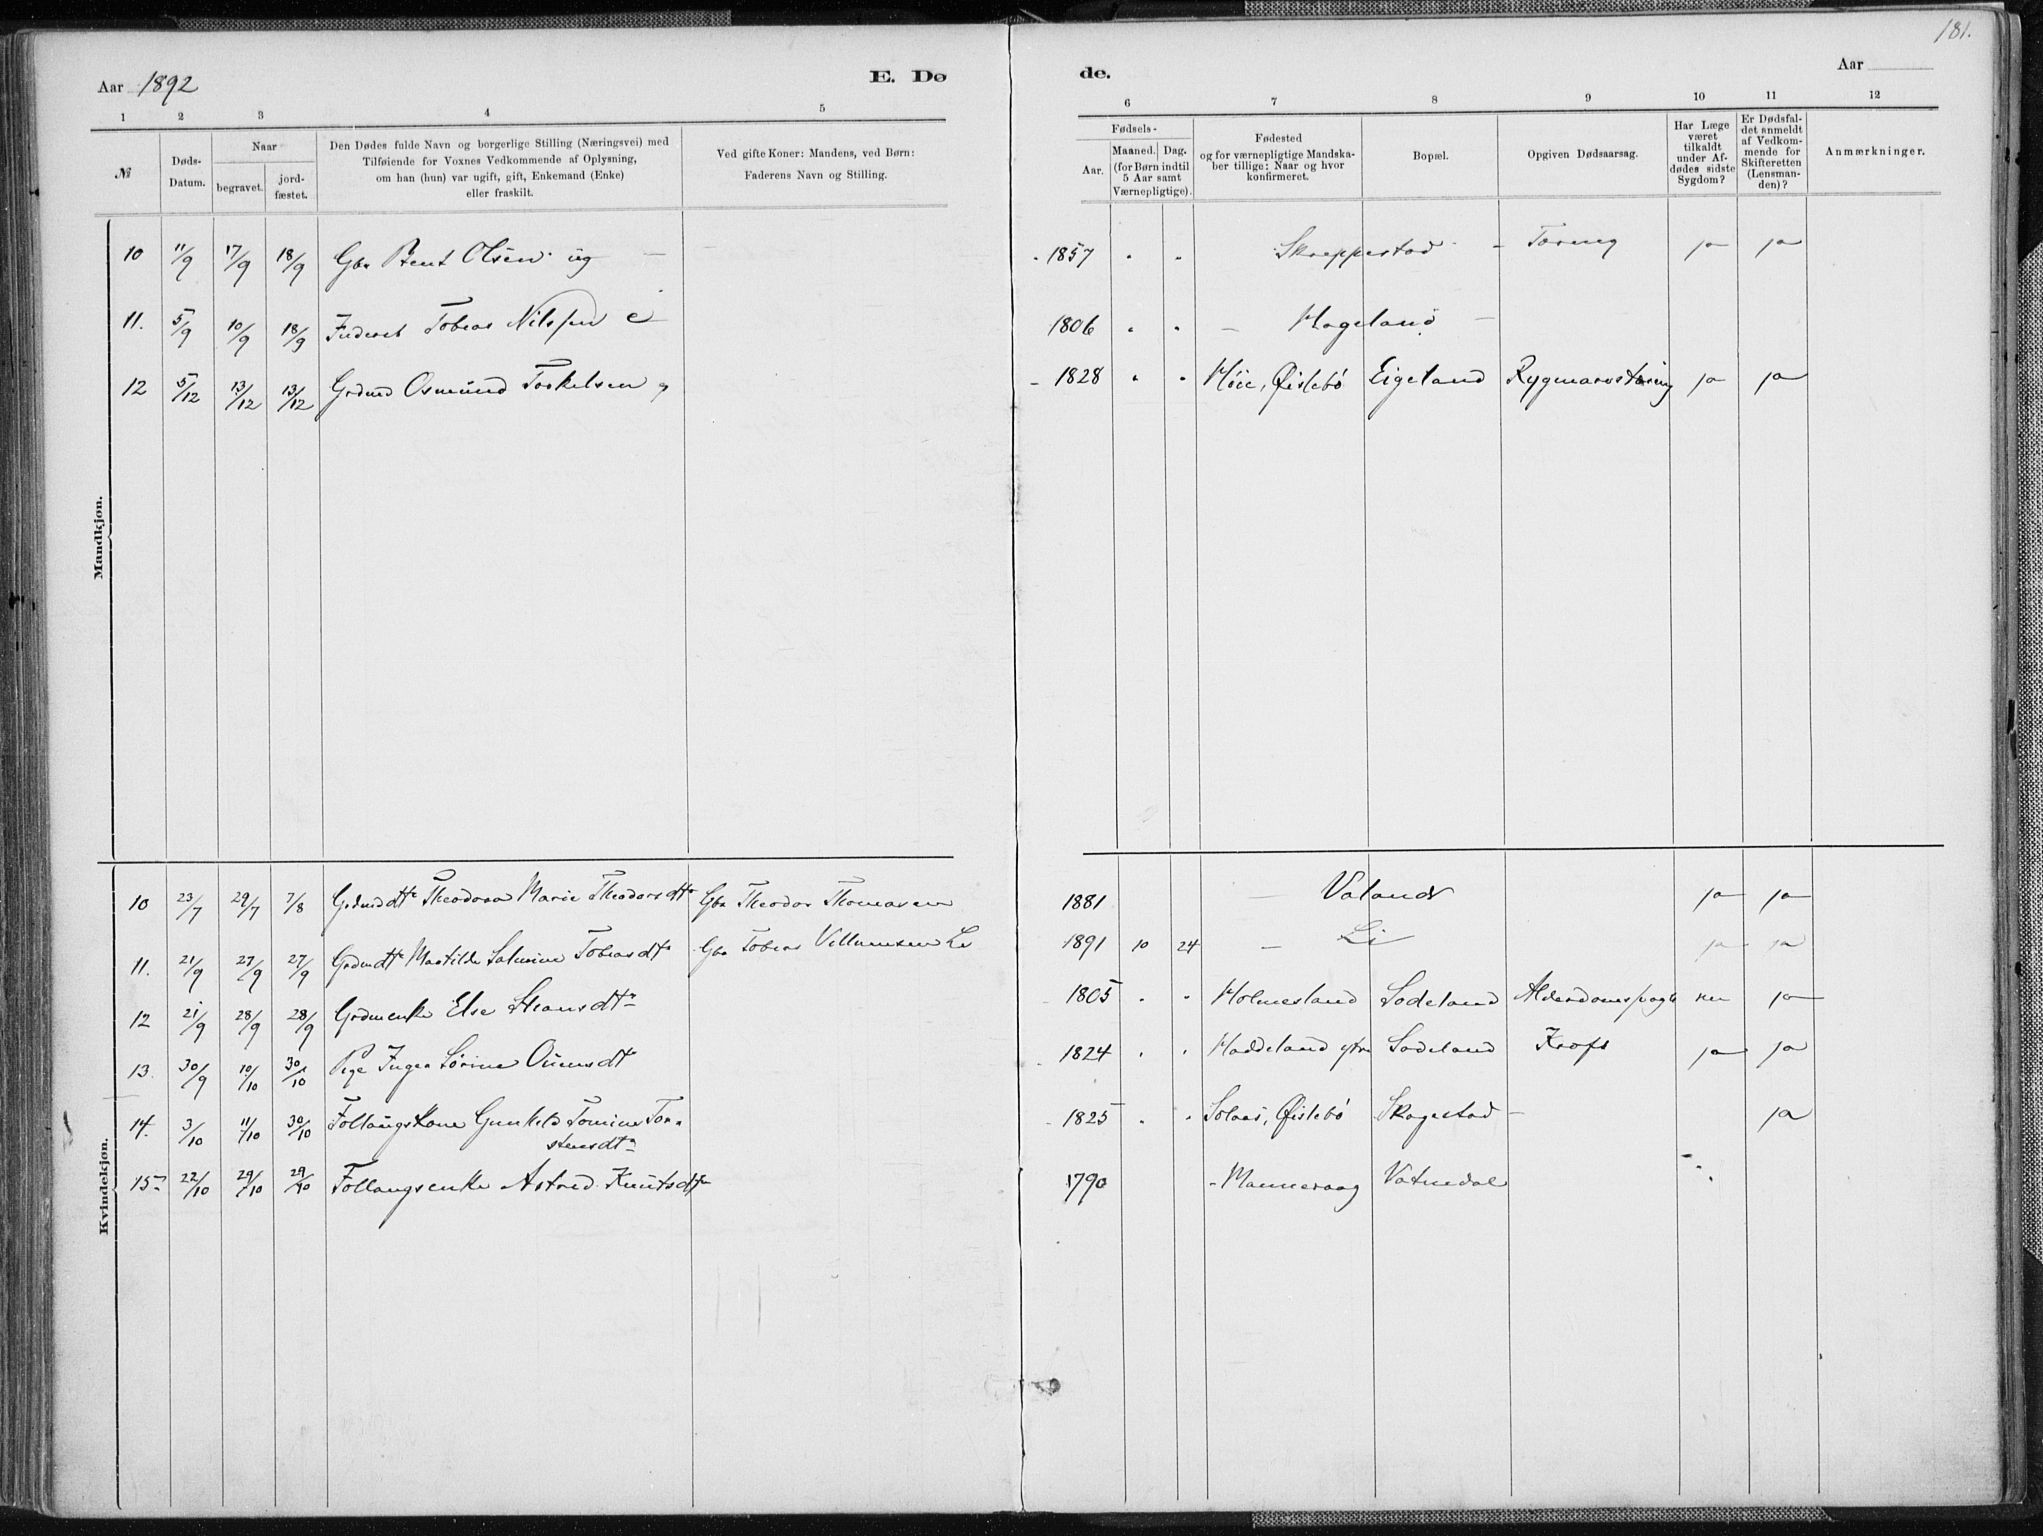 181.
Aar 1892 E. Dø de. Aar
1 2 3 4 5 6 7 8 9 10 11 12
№ Døds-Datum. Naar begravet. jord-fæstet. Den Dødes fulde Navn og borgerlige Stilling (Næringsvei) med Tilføiende for Voxnes Vedkommende af Oplysning, om han (hun) var ugift, gift, Enkemand (Enke) eller fraskilt. Ved gifte Koner: Mandens, ved Børn: Faderens Navn og Stilling. Fødsels- Aar. Maaned. Dag. (for Børn indtil 5 Aar samt Værnepligtige). Fødested og for værnepligtige Mandska-ber tillige: Naar og hvor konfirmeret. Bopæl. Opgiven Dødsaarsag. Har Læge været tilkaldt under Af-dødes sidste Sygdom? Er Dødsfal-det anmeldt af Vedkom-mende for Skifteretten (Lensman-den)? Anmærkninger.
Mandkjøn.
10 11/9 17/9 18/9 Gbr Bent Olsen ug — 1857 " " Skreppestad - Tæring ja ja
11. 5/9 10/9 18/9 Tobias Nilssen e 1806 " " — Hageland —
12 5/12 13/12 13/12 Grdmd Osmund Torkelsen g 1828 " " Høie, Øislebø Eigeland Rygmarvstæring ja ja
Kvindekjøn.
10 23/7 29/7 7/8 Grdmdtr Theodora Marie Theodorsdtr Gbr Theodor Thomassen 1881 — Valand ja ja
11. 21/9 27/9 27/9 Grdmdtr Mathilde Salmine Tobiasdtr Gbr Tobias Villumsen Li 1891 10 24 — Li ja ja
12 21/9 28/9 28/9 Grdmenke Else Hansdtr 1805 " " Holmesland Sodeland nei ja
13. 30/9 10/10 30/10 Pige Inger Sørine Ouensdtr 1824 " " Haddeland ytre Sodeland Kræft ja ja
14. 3/10 11/10 30/10 Gunhild Tomine Tor-
stensdtr 1825 " " Solaas, Øislebø Skagestad — ja
15 22/10 29/10 29/10 Astred Knutsdtr 1790 Vatnedal